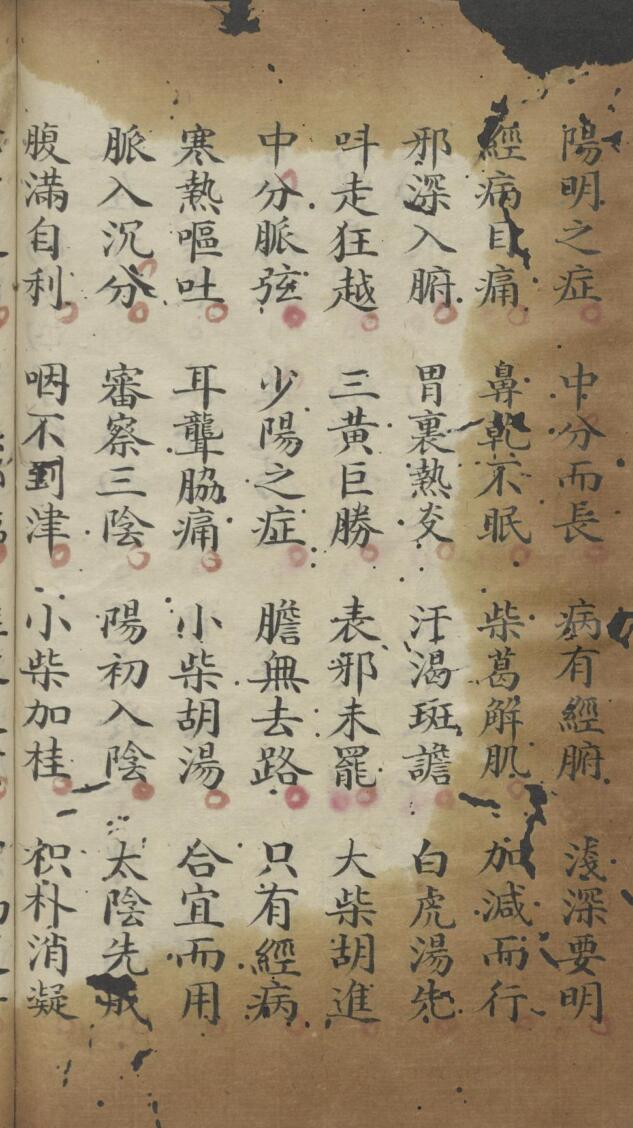 陽明之症 中分而長 病有經腑 淺深要明
經病目痛 鼻乾不眠 柴葛解肌 加減而行
邪深入腑 胃裏熱炎 汗渴斑譫 白虎湯先
呌走狂越 三黃巨勝 表邪未罷 大柴胡進
中分脈弦 少陽之症 膽無去路 只有經病
寒熱嘔吐 耳聾脇痛 小柴胡湯 合宜而用
脈入沉分 審察三陰 陽初入陰 太陰先
腹滿自利 咽不到津 小柴加桂 枳朴消凝